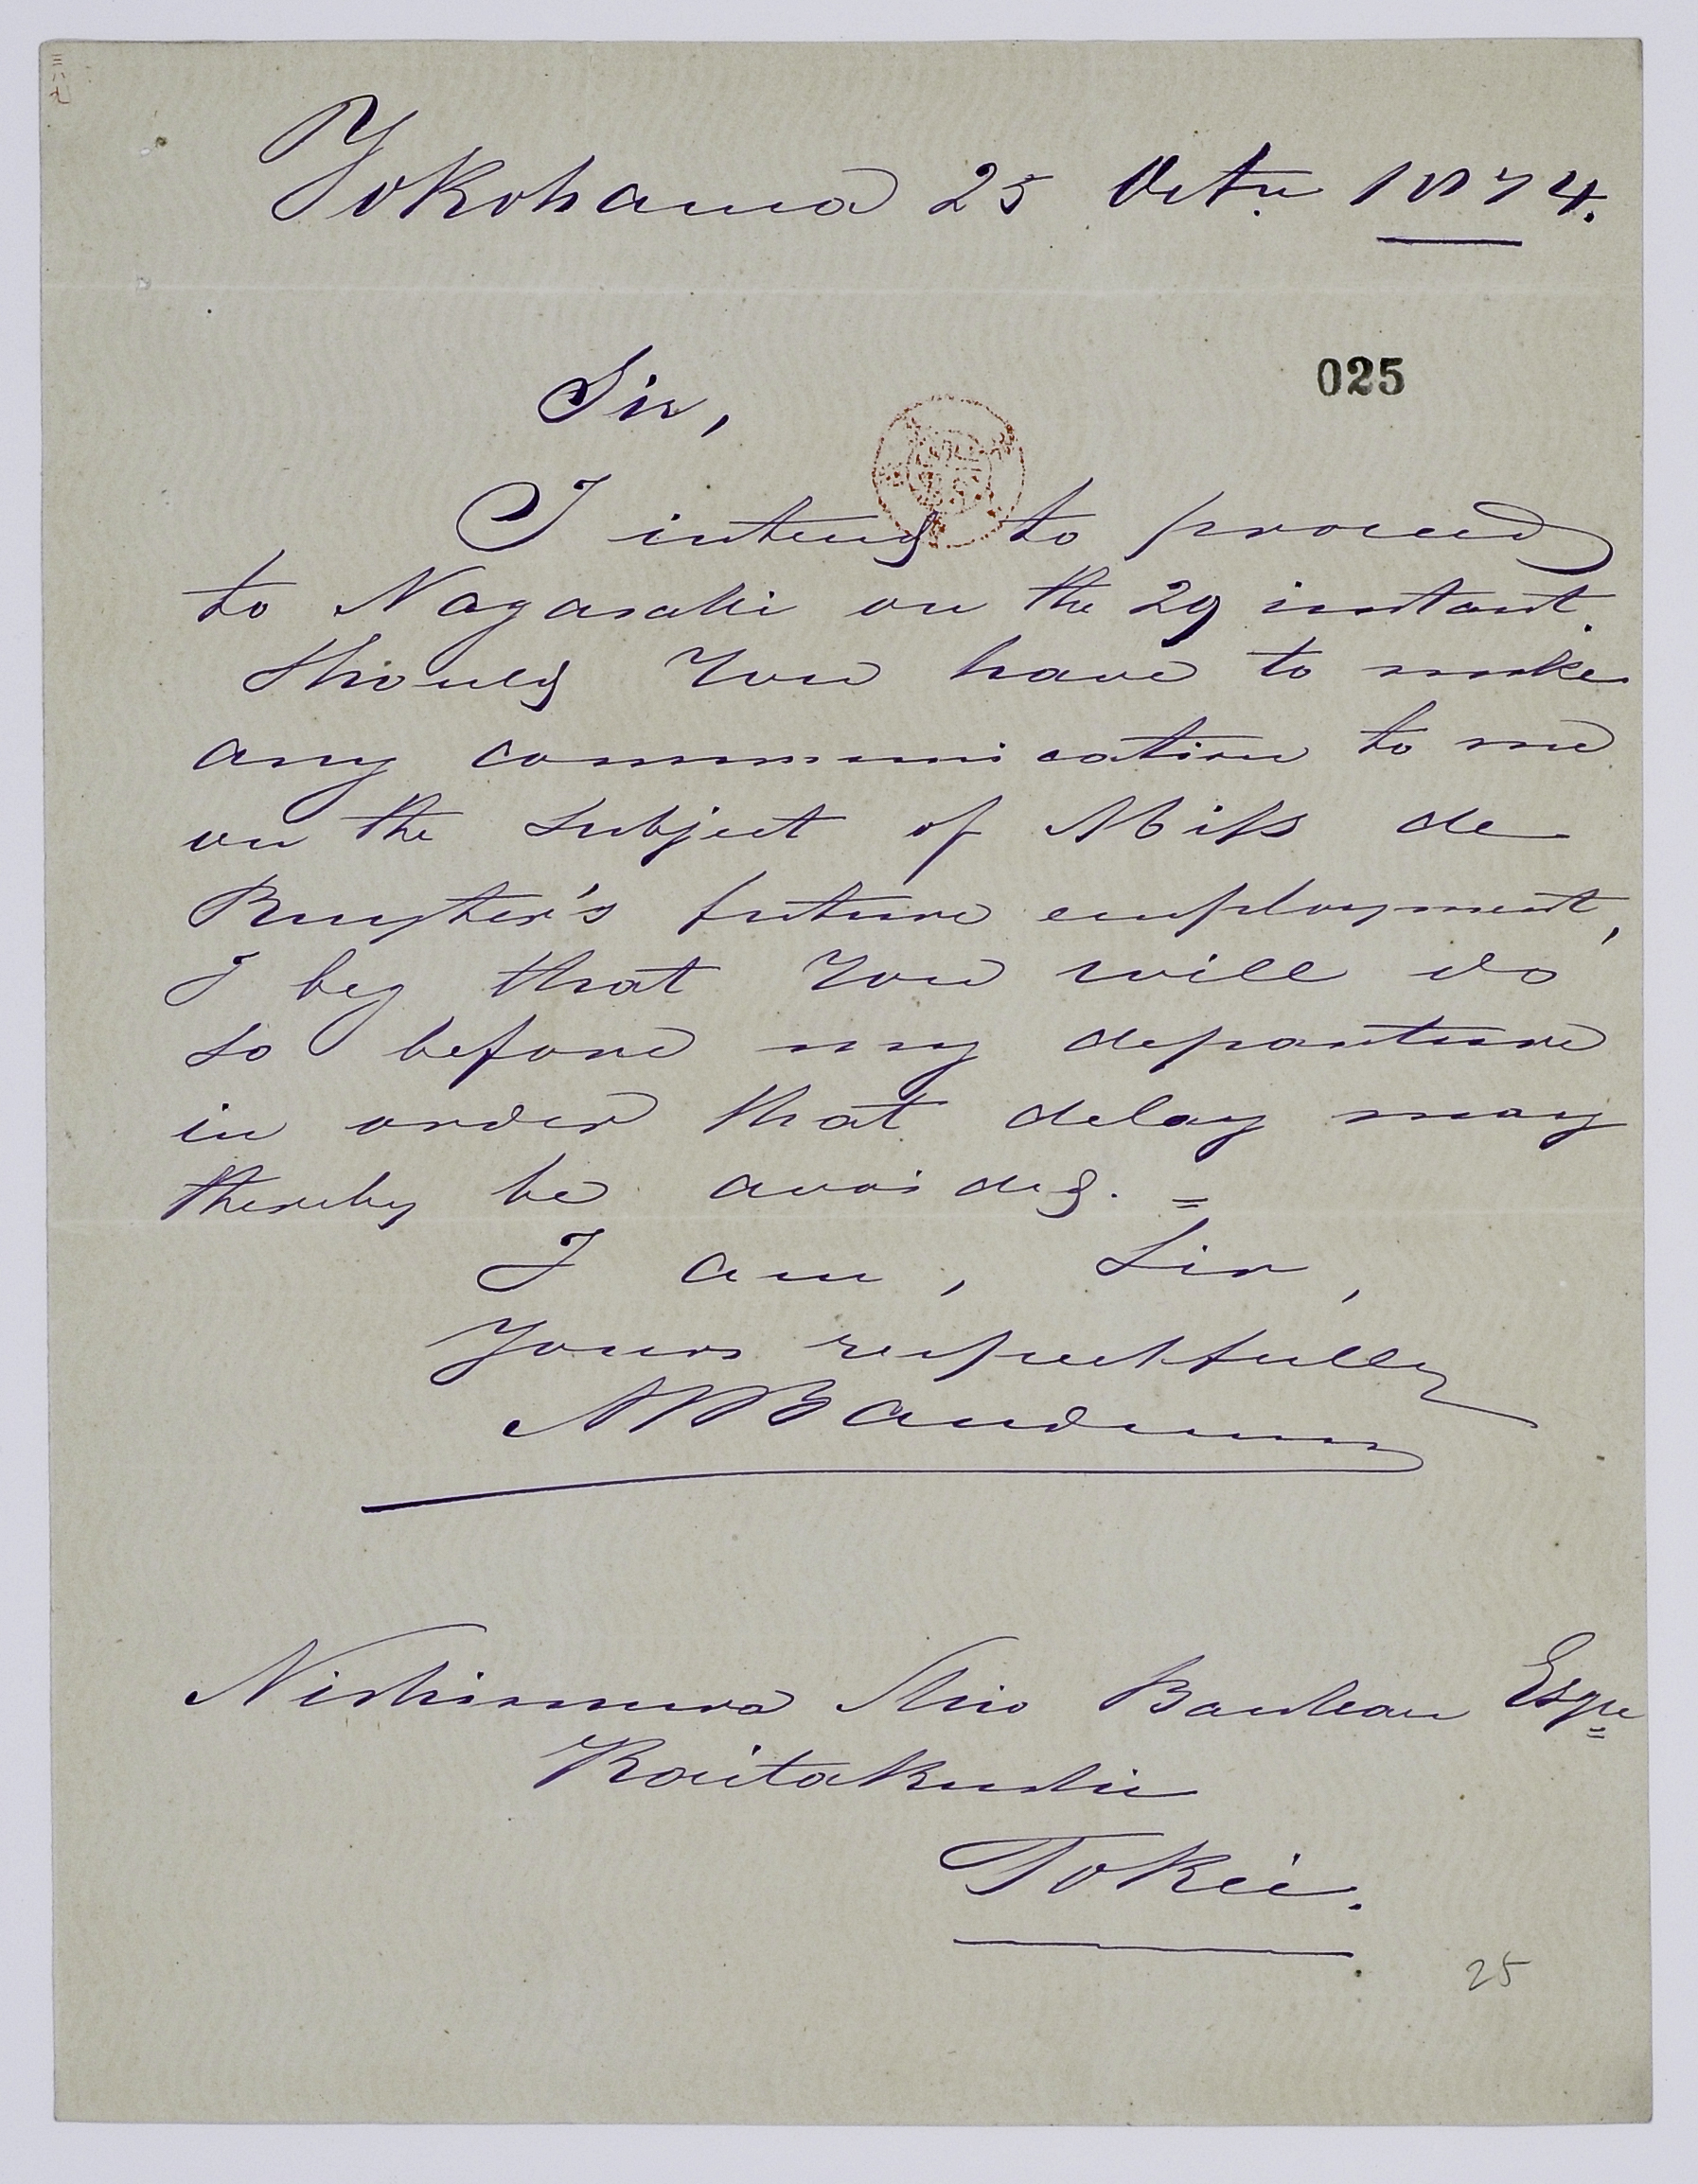 三八七
Yokohama 25 Octr. 1874.
025
Sir,
I intend to proceed
to Nagasaki on the 29 instant.
Should You have to make
any communication to me
on the Subject of Miss de
Ruyter's future employment,
I beg that You will do
so before my departure
in order that delay may
thereby be avoided. =
I am, Sir,
Yours respectfully
Bauduin
Nishimura Shio Esqre
Kaitakushi
Tokei.
25